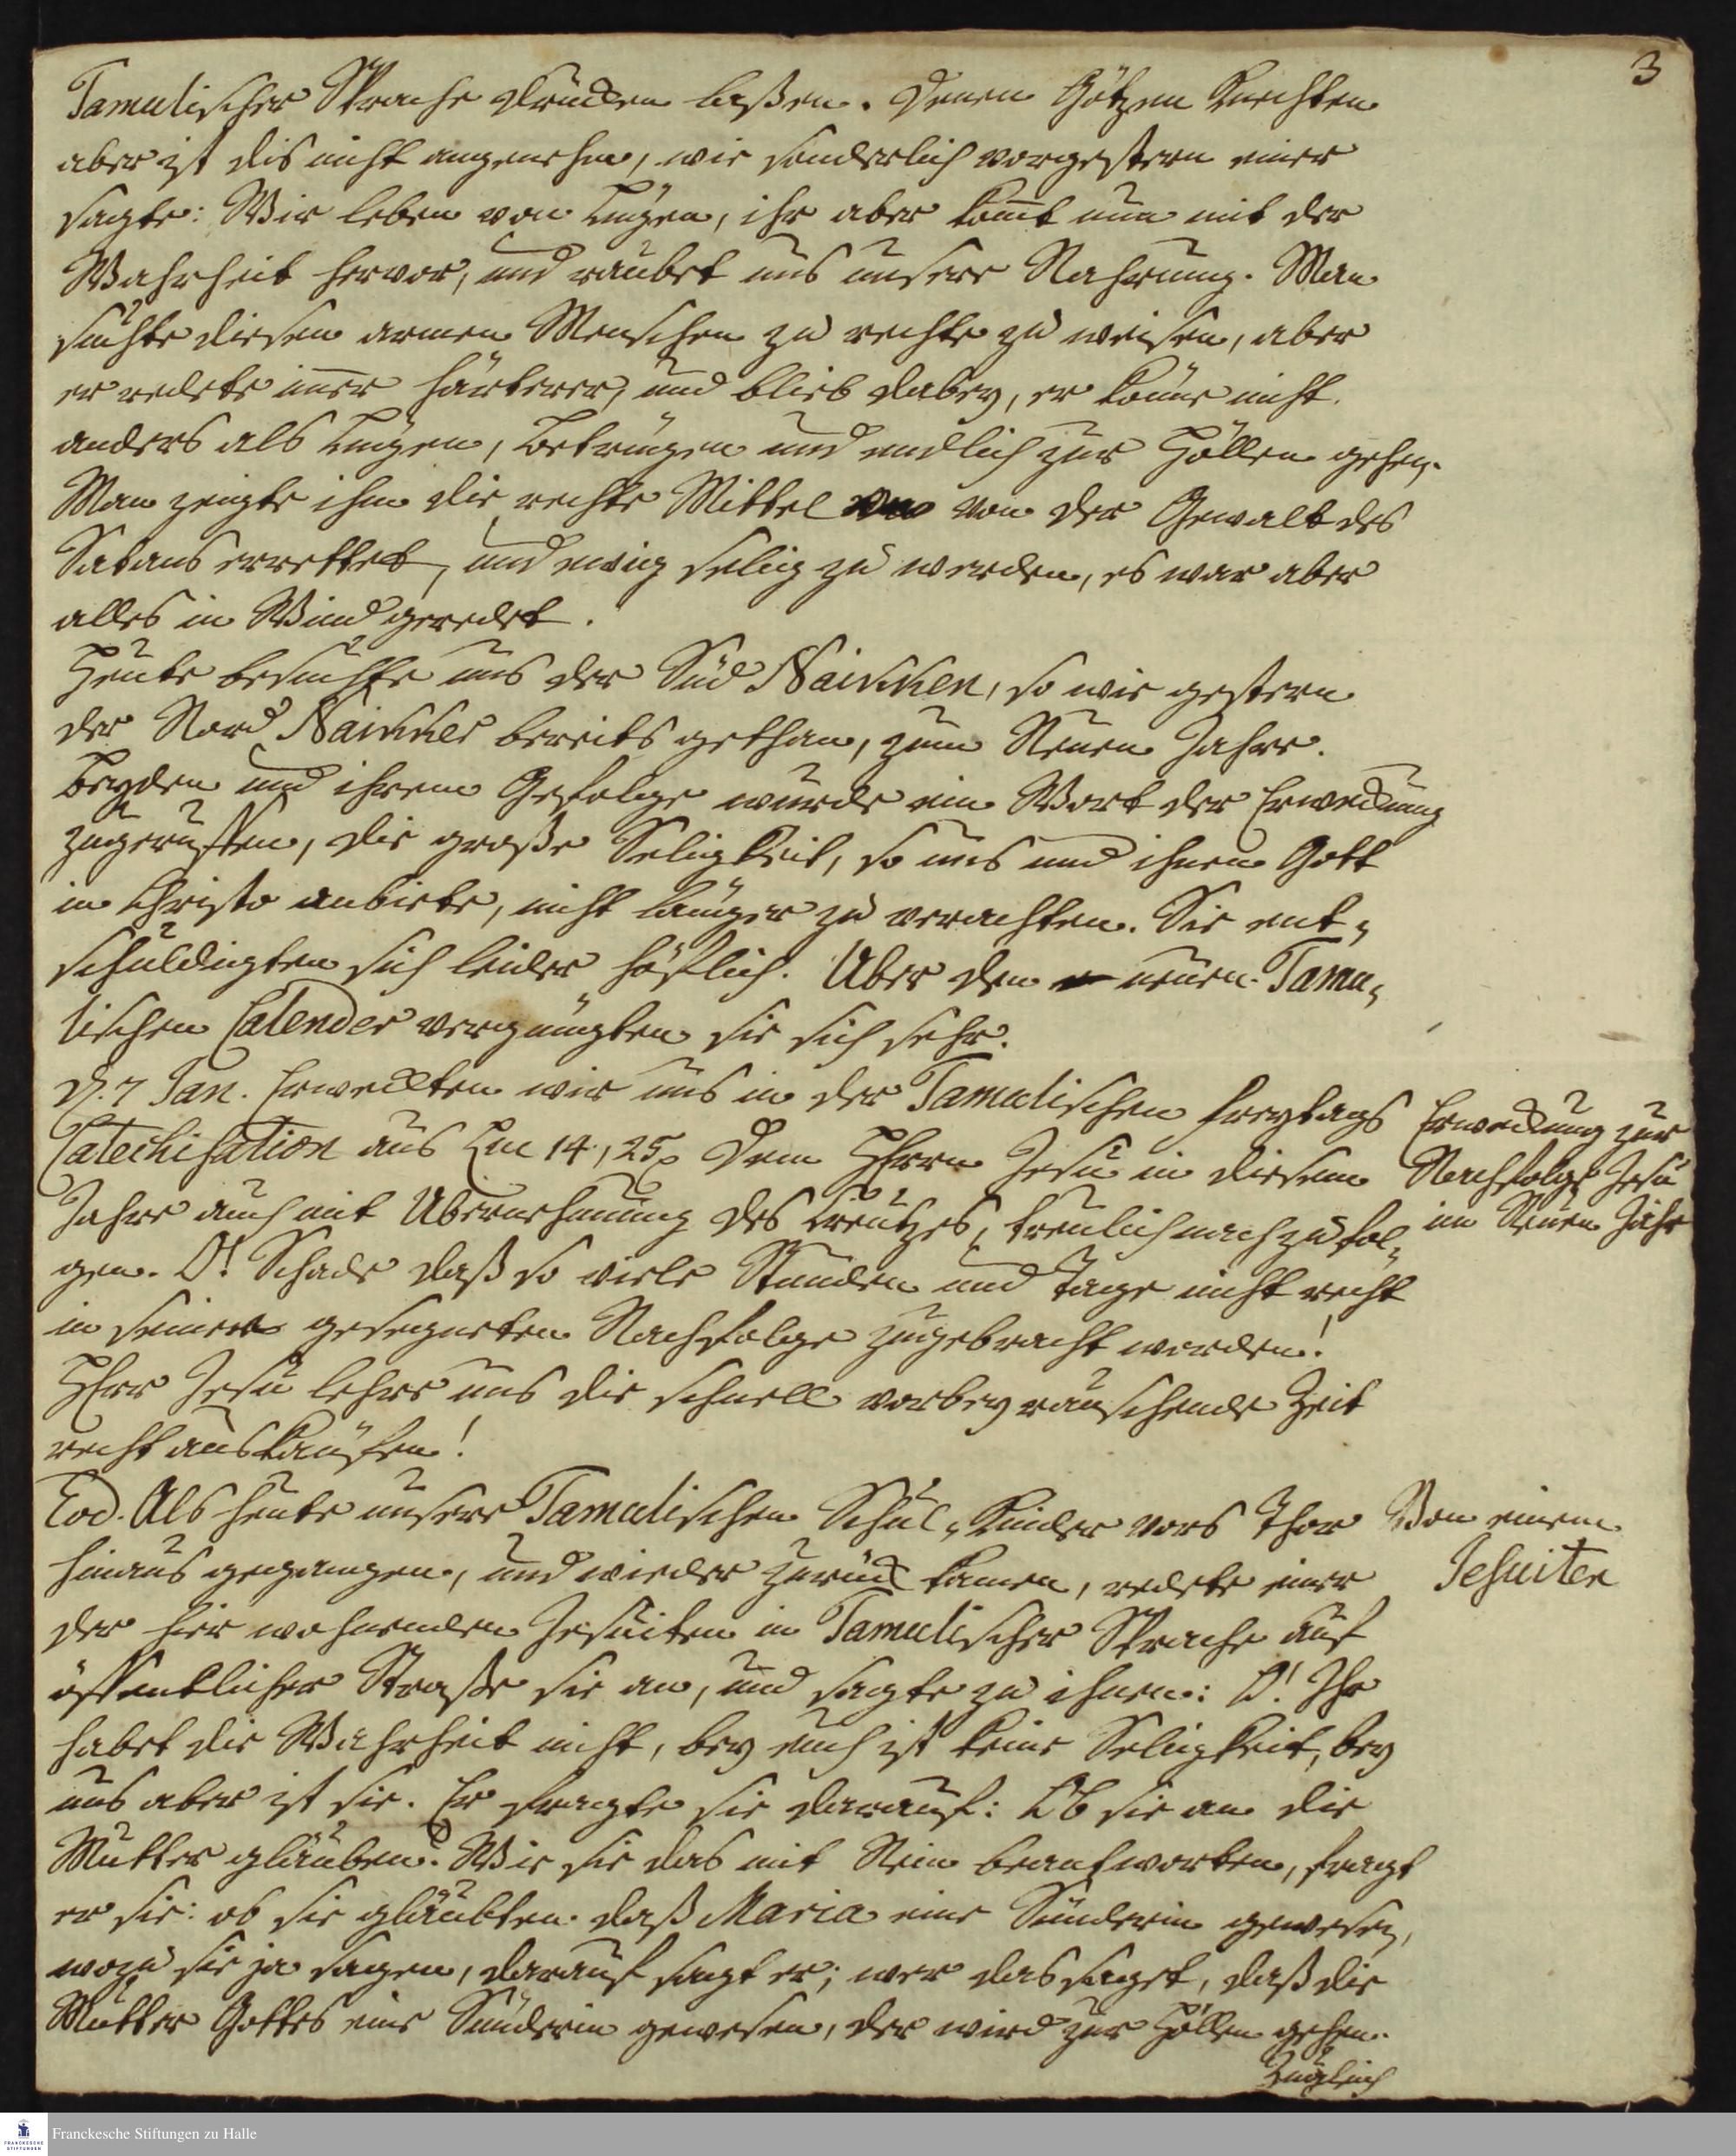 3
Tamulischer Sprache drucken laßen. Denen Götzen Knechten
aber ist dis nicht angenehm, wie sonderlich vorgestern einer
sagte: Wir leben von Lügen, ihr aber komt nun mit der
Wahrheit hervor, und raubet uns unsere Nahrung. Man
suchte diesen armen Menschen zu rechte zu weisen, aber
er redete imer härterer, und blieb dabey, er könne nicht
anders als Lügen, betrügen und endlich zur Höllen gehen.
Man zeigte ihm die rechte Mittel von der Gewalt des
Satans errettet, und ewig selig zu werden, es war aber
alles in Wind geredet.
Heute besuchte uns der Süd Naikken, so wie gestern
der Nord Naikker bereits gethan, zum Neuen Jahre.
Beyden und ihrem Gefolge wurde ein Wort der Erweckung
zugeruffen, die große Seligkeit, so uns und ihnen Gott
in Christo anbiete, nicht länger zu verachten. Sie ent-
schuldigten sich leider höflich. Uber den neuen Tamu-
lischen Calender vergnügten sie sich sehr.
D. 7 Jan. Erweckten wir uns in der Tamulischen Freytags
Catechisation aus Luc 14, 25. Dem HErrn Jesu in diesem
Jahre auch mit Ubernehmung des Creutzes, treulich nachzufol-
gen. O! Schade daß so viele Stunden und Tage nicht recht
in seiner gesegneten Nachfolge zugebracht worden!
HErr Jesu lehre uns die schnell vorbey rauschende Zeit
recht auskaufen!
Erweckung zur
Nachfolge Jesu
im Neuen Jahr
Eod. Als heute unsere Tamulischen Schul-Kinder vors Thor
hinaus gegangen, und wieder zurück kamen, redete einer
der hier wohnenden Jesuiten in Tamulischer Sprache auf
öffentlicher Straße sie an, und sagte zu ihnen: O! Ihr
habet die Wahrheit nicht, bey euch ist keine Seligkeit, bey
uns aber ist sie. Er fragte sie darauf: Ob sie an die
Mutter gläuben? Wie sie das mit Nein beantworten, fragt
er sie: ob sie gläubten daß Maria eine Sünderin gewesen,
wozu sie ja sagen, darauf sagt er; wer das saget, daß die
Mutter Gottes eine Sünderin gewesen, der wird zur Höllen gehen.
Zugleich
Von einem
Jesuiten
Franckesche Stiftungen zu Halle
FRANCKESCHE
STIFTUNGEN